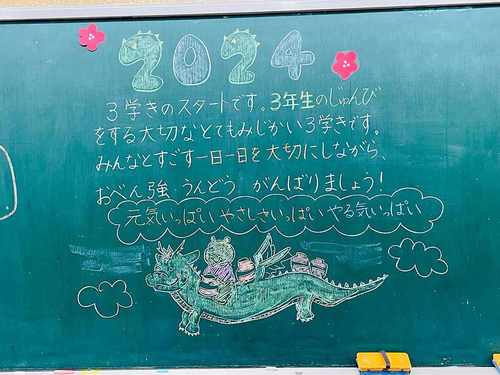 2024
3学きのスタートです。3年生のじゅんび
をする大切なとてもみじかい3学きです。
みんなとすごす一日一日を大切にしながら、
おべん強 うんどう がんばりましょう!
元気いっぱい やさしさいっぱい やる気いっぱい